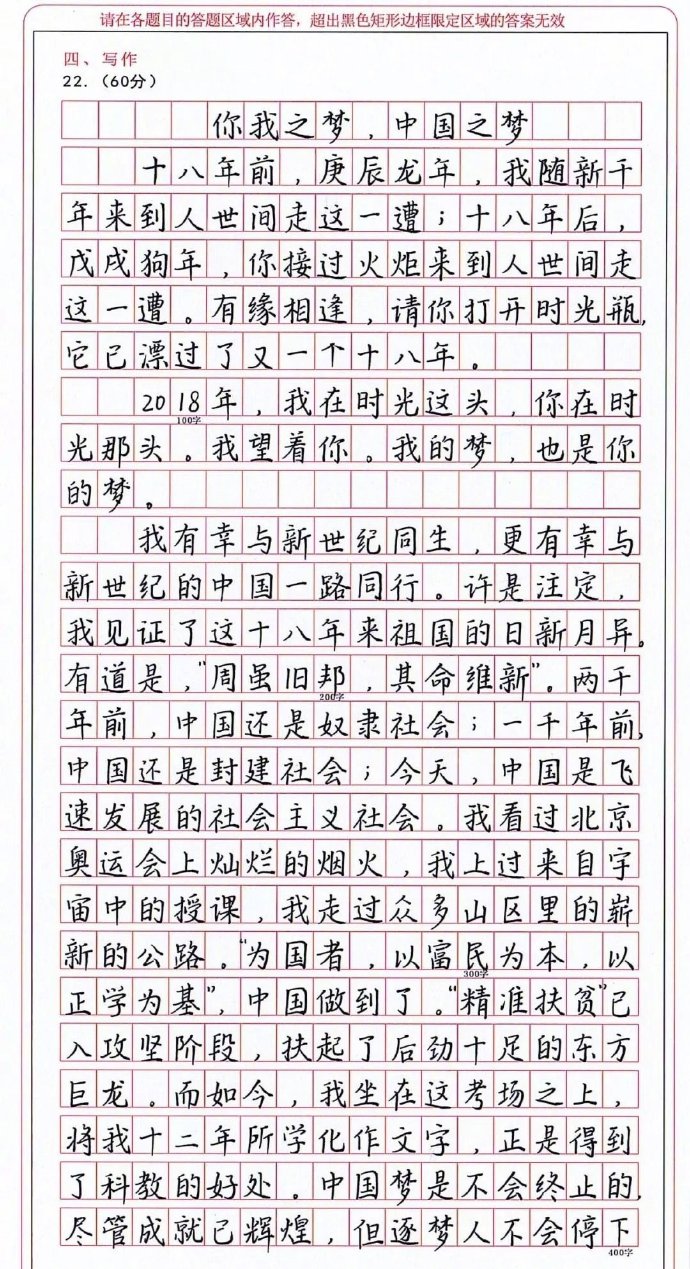 请在各题目的答题区域内作答，超出黑色矩形边框限定区域的答案无效
四、写作
22.（60分）
你我之梦，中国之梦
十八年前，庚辰龙年，我随新千
年来到人世间走这一遭；十八年后，
戊戌狗年，你接过火炬来到人世间走
这一遭。有缘相逢，请你打开时光瓶，
它已漂过了又一个十八年。
2018年，我在时光这头，你在时
100字
光那头。我望着你。我的梦，也是你
的梦。
我有幸与新世纪同生，更有幸与
新世纪的中国一路同行。许是注定，
我见证了这十八年来祖国的日新月异。
有道是，“周虽旧邦，其命维新”。两千
200字
年前，中国还是奴隶社会；一千年前，
中国还是封建社会；今天，中国是飞
速发展的社会主义社会。我看过北京
奥运会上灿烂的烟火，我上过来自宇
宙中的授课，我走过众多山区里的崭
新的公路。“为国者，以富民为本，以
300字
正学为基”，中国做到了。“精准扶贫”已
入攻坚阶段，扶起了后劲十足的东方
巨龙。而如今，我坐在这考场之上，
将我十二年所学化作文字，正是得到
了科教的好处。中国梦是不会终止的，
尽管成就已辉煌，但逐梦人不会停下
400字